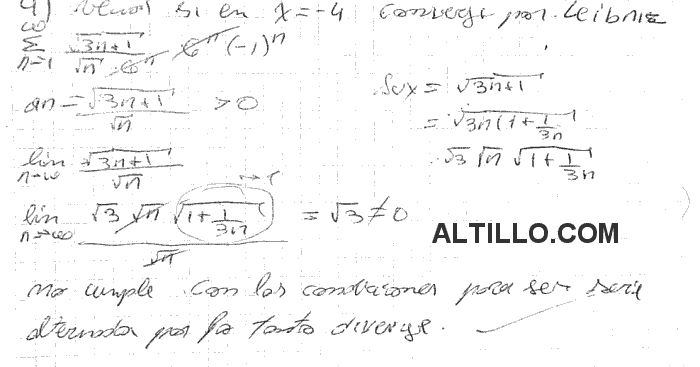 4) Vemos si en x = -4 converge por Leibniz
∞ Σ n=1 √(3n+1) / (√n · 6ⁿ) 6ⁿ (-1)ⁿ
an = √(3n+1) / √n > 0
lim n→∞ √(3n+1) / √n
lim n→∞ √3 √n √(1 + 1/3n) / √n = √3 ≠ 0
→1
Sux = √(3n+1)
= √(3n(1 + 1/3n))
√3 √n √(1 + 1/3n)
ALTILLO.COM
no cumple con las condiciones para ser serie
alternada por lo tanto diverge.